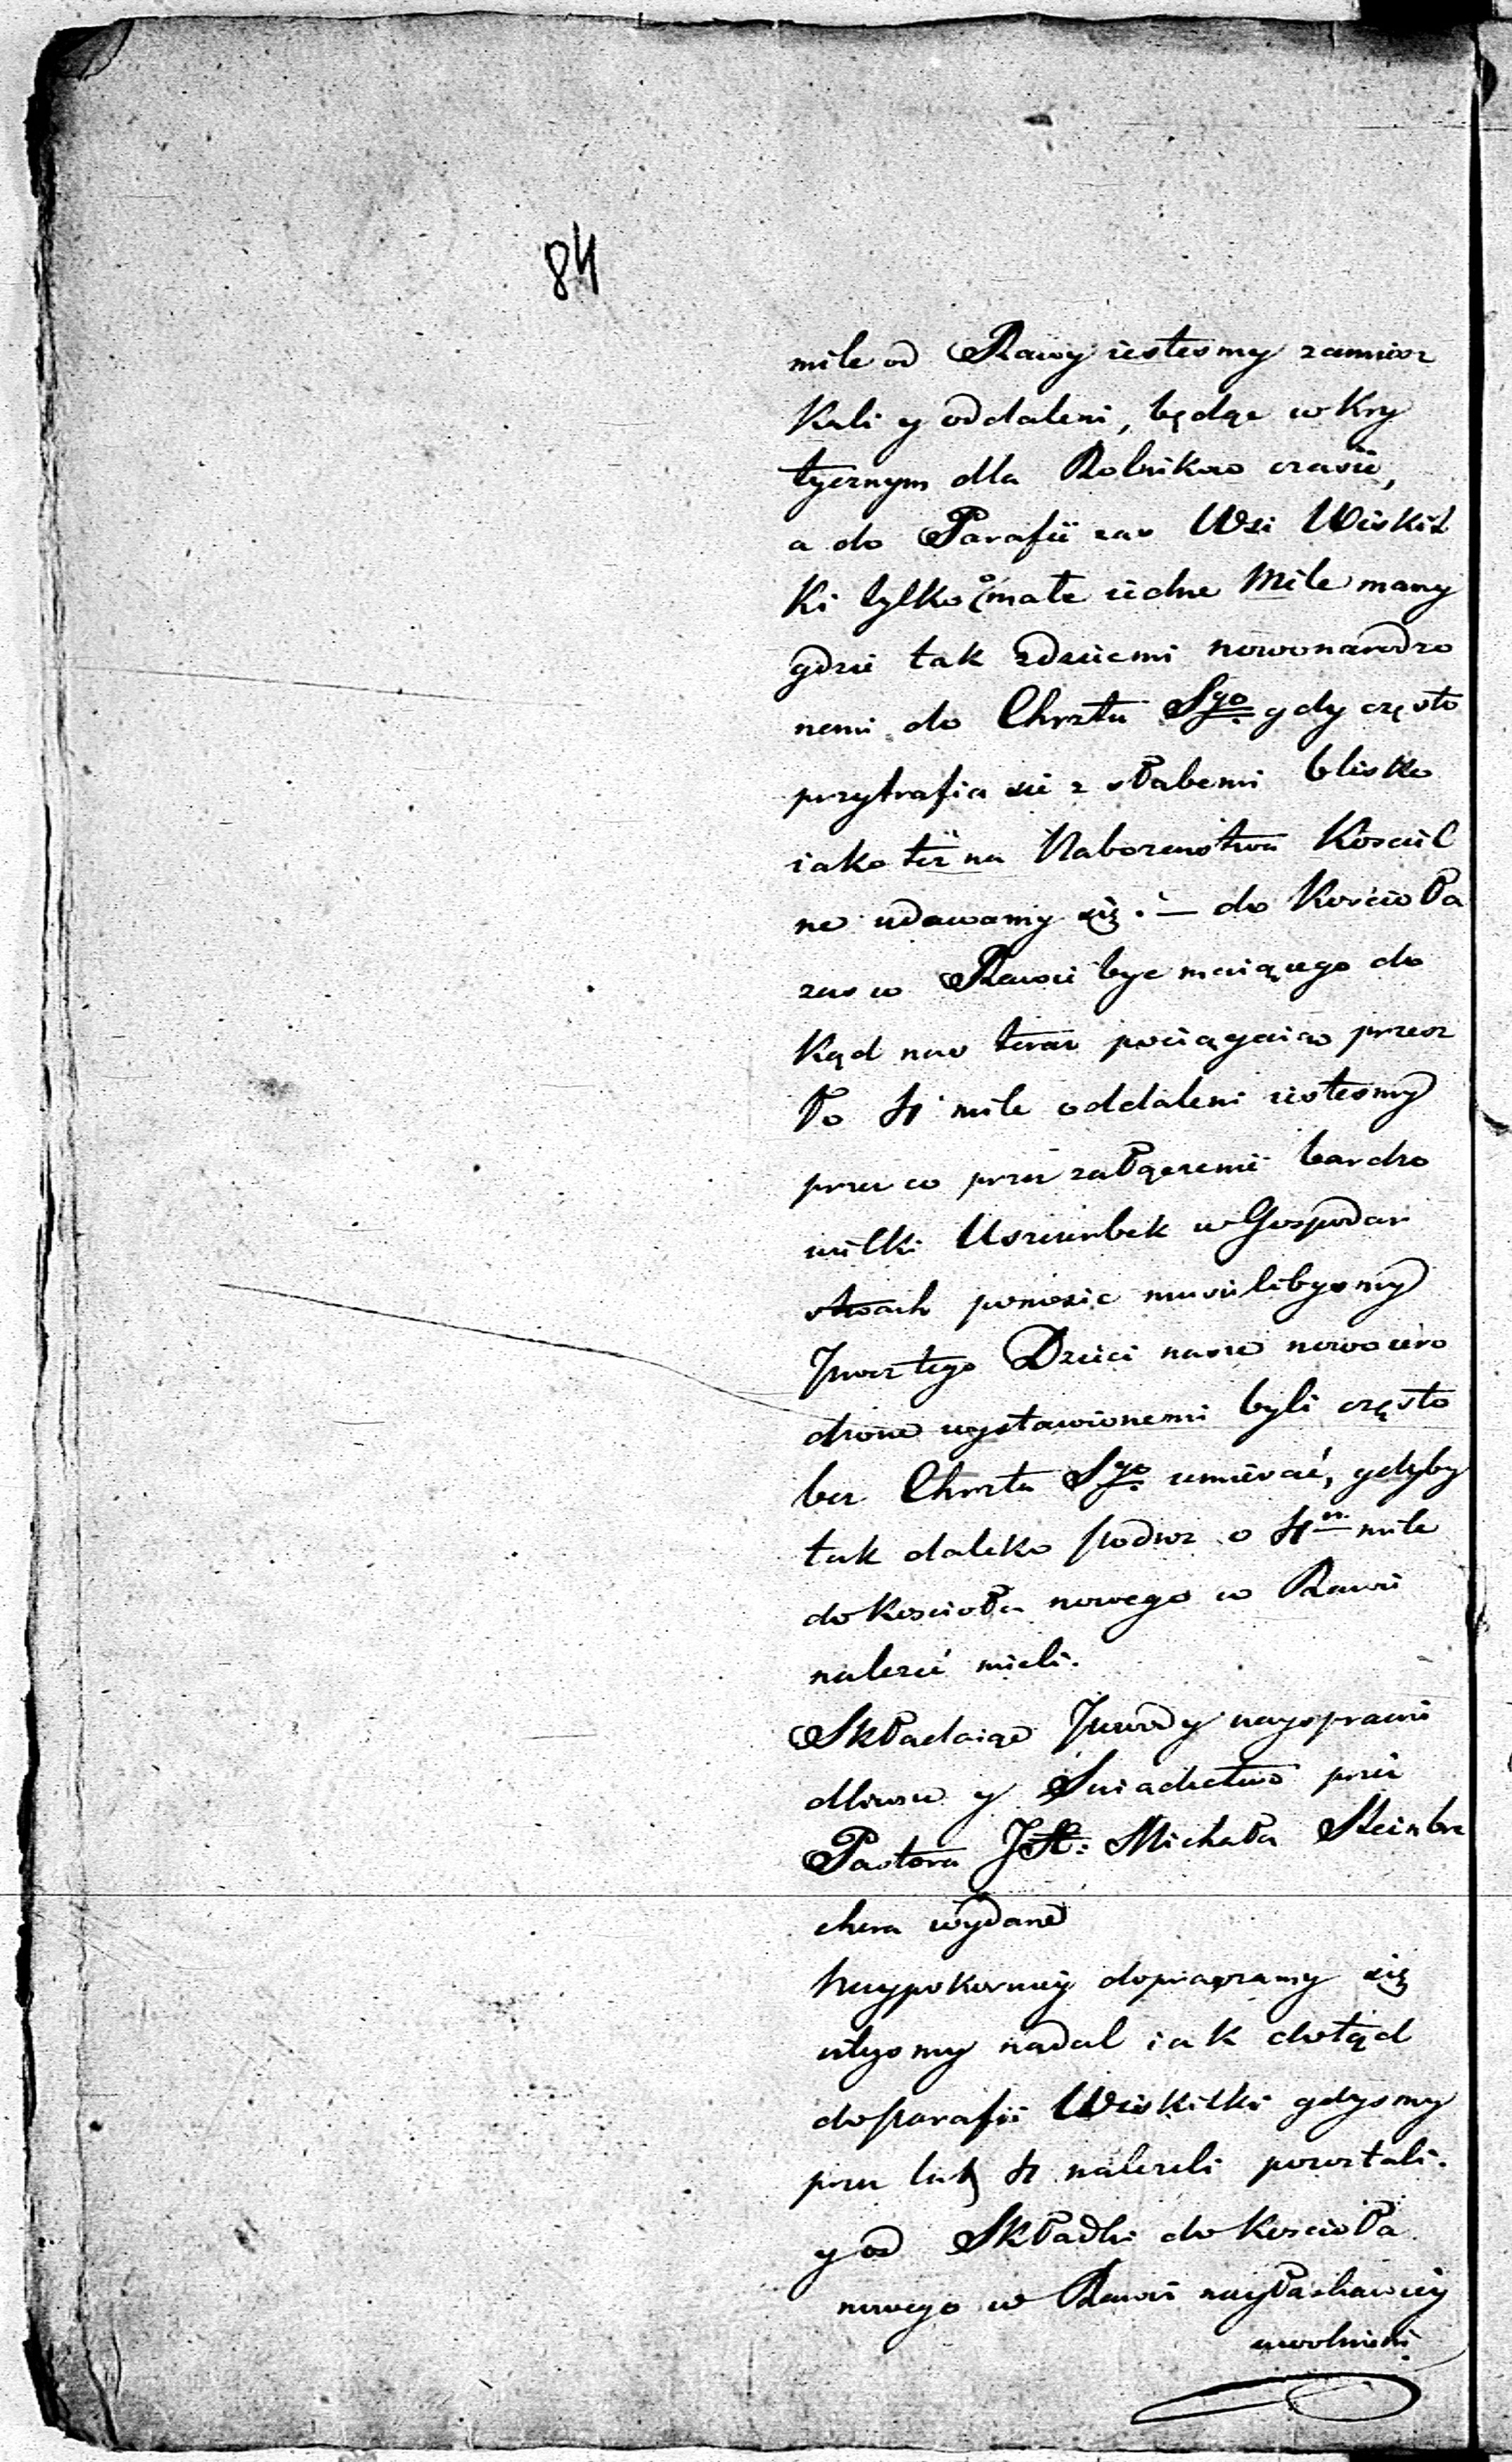 84
mile od Rawy iestesmy zamiesz
kali y oddaleni, będąc w kry
tycznym dla Rolnikow czasie,
a do Parafii zas Wsi Wiskit
ki tylko o małe iedne Mile mamy
gdzie tak zdziecmi nowonarodzo
nemi do Chrztu Sgo gdy często
przytrafia sie z słabemi blisko
iako też na Nabozenstwa Kosciel
ne udawamy się. — do Koscioła
zas w Rawie byc maiącego do
kąd nas teraz pociągaią przesz
ło 4 mile oddaleni iestesmy
przez co przy załączeniu bardzo
wielki Uszczerbek w Gospodar
stwach ponosic musielibysmy
procz tego Dzieci nasze nowo uro
dzone wystawionemi byli często
bez Chrztu Sgo umierać, gdyby
tak daleko podroz o 4 mile
do koscioła nowego w Rawie
nalezeć mieli.
Składaiąc Powody naysprawie
dliwsze y Swiadectwo przez
Pastora Michała Steinbre
chera wydane
Naypokorniey dopraszamy się
abysmy nadal iak dotąd
do parafii Wiskitki gdysmy
przez lat 4 nalezeli pozostali.
y od Składki do koscioła
nowego w Rawie nayłaskawiey
uwolnieni